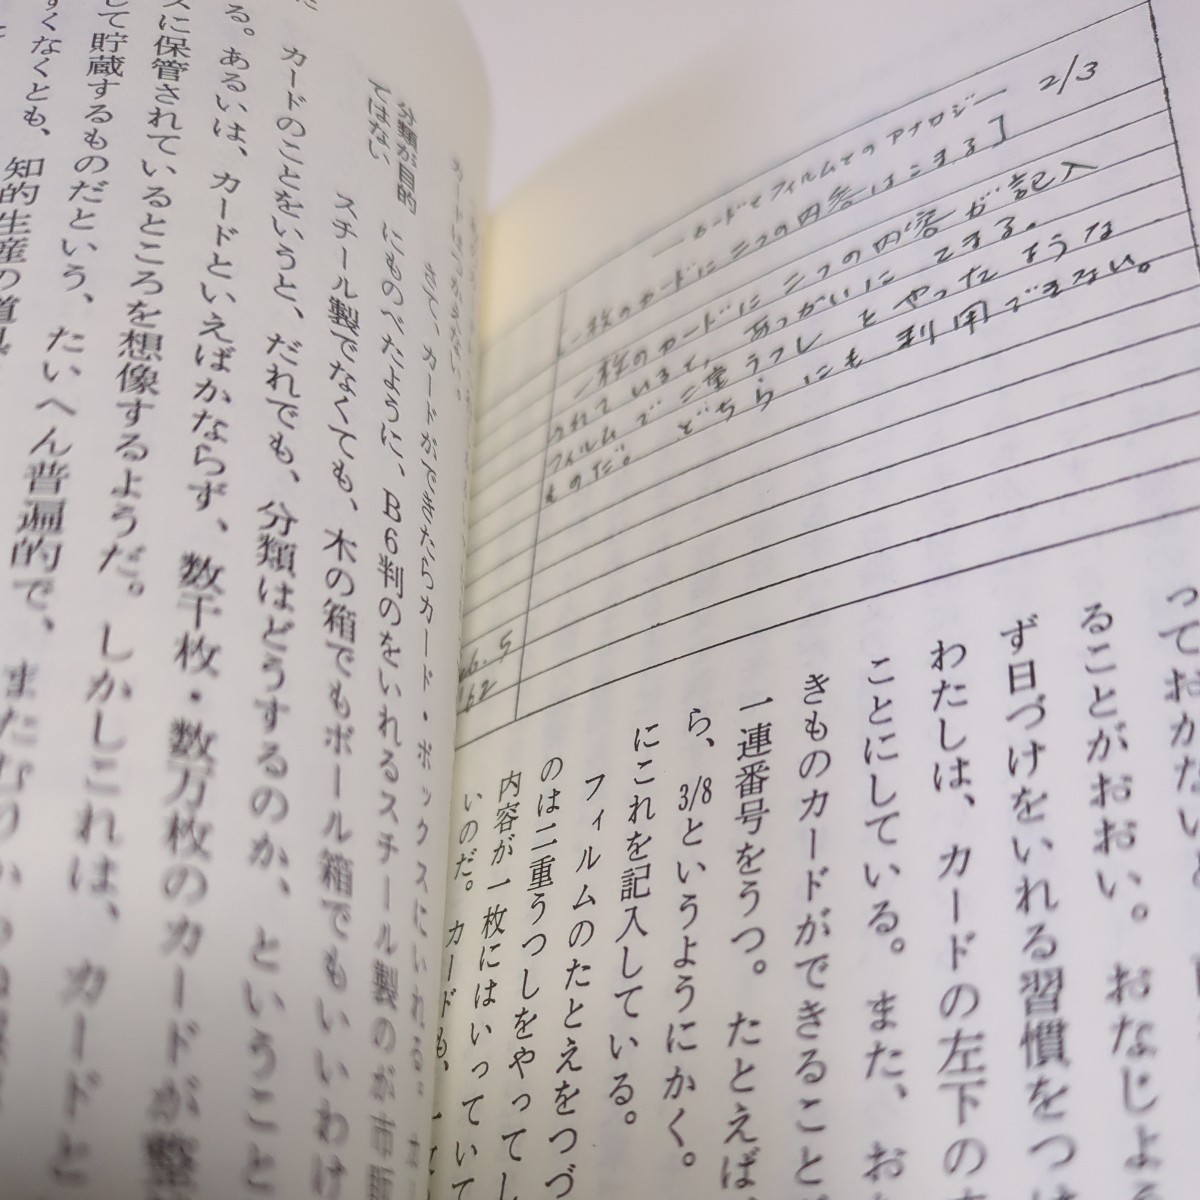 ーカードとフィルムとのアナロジー 2/3
[一枚のカードに二つの内容はこまる]
一枚のカードに二つの内容が記入
されていると、あつかいにこまる。
フィルムで二重うつしをやったような
ものだ。どちらにも利用できない。
6.5
162
っておかないと
ることがおおい。おなじよ
ず日づけをいれる習慣をつけ
わたしは、カードの左下の
ことにしている。また、お
きものカードができること
一連番号をうつ。たとえば、
ら、3/8というようにかく。
にこれを記入している。
フィルムのたとえをつづ
のは二重うつしをやってし
内容が一枚にはいってい
いのだ。カードも、一
さて、カードができたらカード・ボックスにいれる。
分類が目的
ではない
にものべたように、B6判のをいれるスチール製のが市販
スチール製でなくても、木の箱でもボール箱でもいいわけ
カードのことをいうと、だれでも、分類はどうするのか、ということ
る。あるいは、カードといえばかならず、数千枚・数万枚のカードが整
スに保管されているところを想像するようだ。しかしこれは、カードと
して貯蔵するものだという、たいへん普遍的で、また
すくなくとも、知的生産の道具